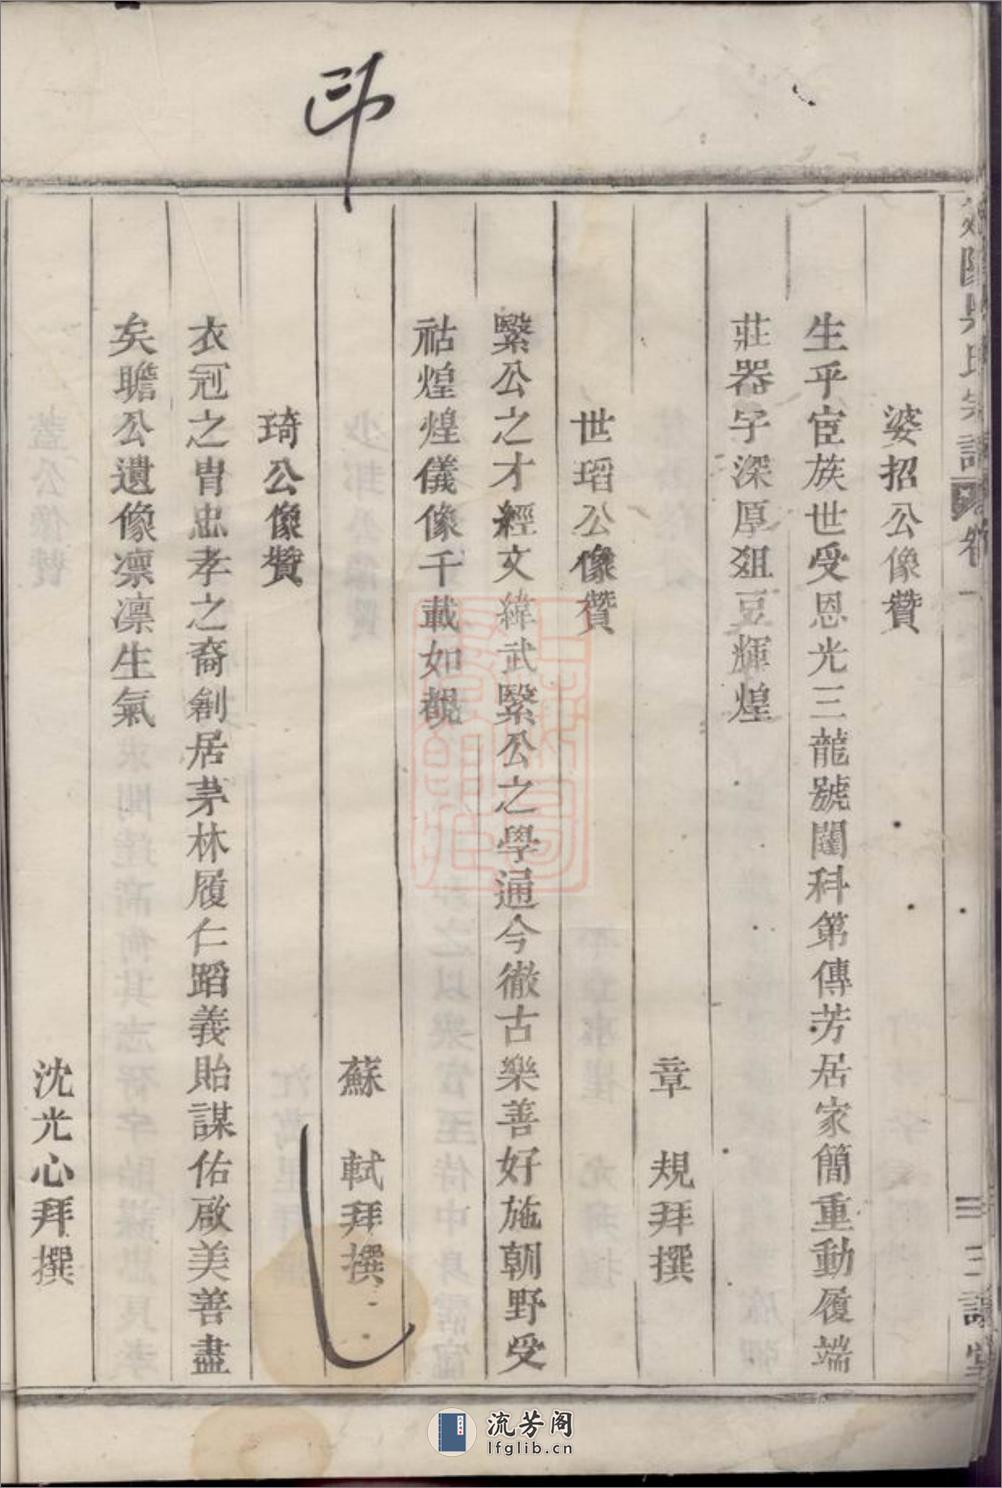 婺招公像贊
生乎宦族世受恩光三龍號闥科第傳芳居家簡重動履端
莊器宇深厚爼豆輝煌
章 規拜撰
世瑫公像贊
繄公之才經文緯武繄公之學通今徹古樂善好施朝野受
祜煌煌儀像千載如覩
蘇 軾拜撰
琦公像贊
衣冠之胄忠孝之裔創居茅林履仁蹈義貽謀佑啟美善盡
矣瞻公遺像凛凛生氣
沈光心拜撰
印
流芳阁
lfglib.cn